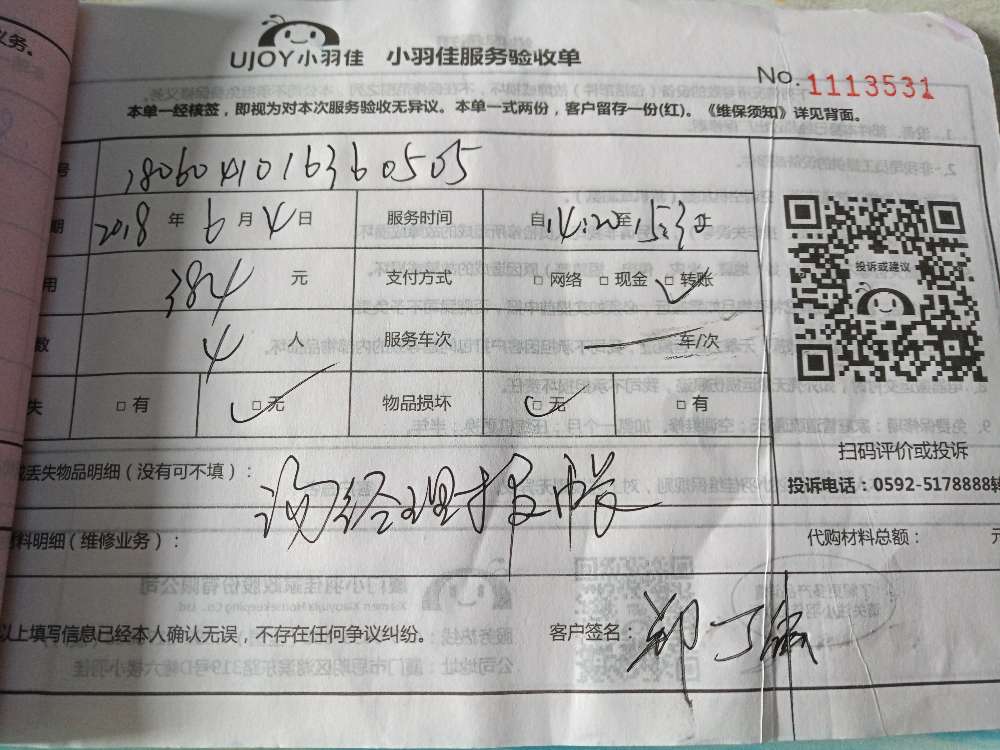 义务。
UJOY小羽佳 小羽佳服务验收单
No. 1113531
本单一经核签，即视为对本次服务验收无异议。本单一式两份，客户留存一份(红)。《维保须知》详见背面。
号 1806041016360505
期 2018年6月4日 服务时间 自14:20至15:30止
用 384元 支付方式 □网络 □现金 □转账
数 4人 服务车次 车/次
失 □有 □无 物品损坏 □无 □有
投诉或建议
扫码评价或投诉
投诉电话：0592-5178888转
或丢失物品明细（没有可不填）：
经理报帐
料明细（维修业务）：
代购材料总额： 元
以上填写信息已经本人确认无误，不存在任何争议纠纷。
客户签名：